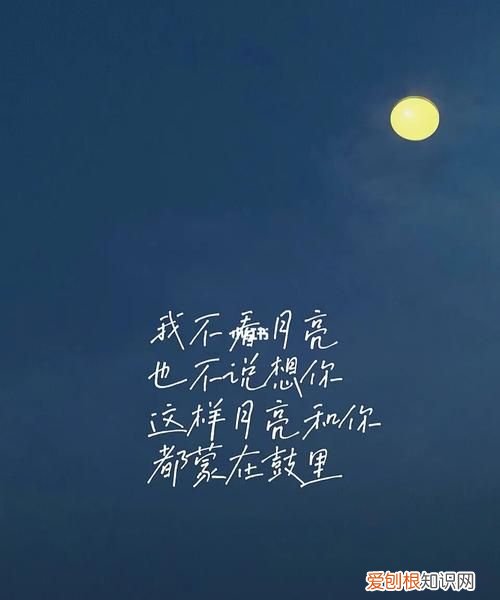 我不看月亮
也不说想你
这样月亮和你
都蒙在鼓里
爱刨根知识网